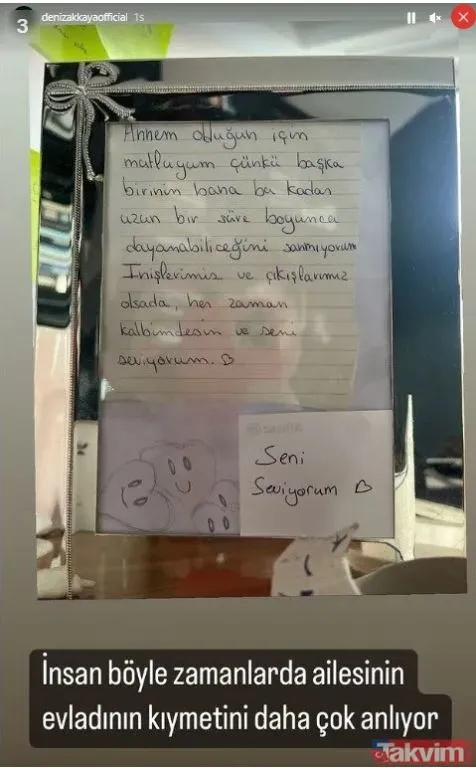 3
denizakkayaofficial 1s
Annem olduğun için
mutluyum çünkü başka
birinin bana bu kadar
uzun bir süre boyunca
dayanabiliceğini sanmıyorum
İnişlerimiz ve çıkışlarımız
olsada, her zaman
kalbimdesin ve seni
seviyorum. ♡
Seni
Seviyorum ♡
İnsan böyle zamanlarda ailesinin
evladının kıymetini daha çok anlıyor
Takvim